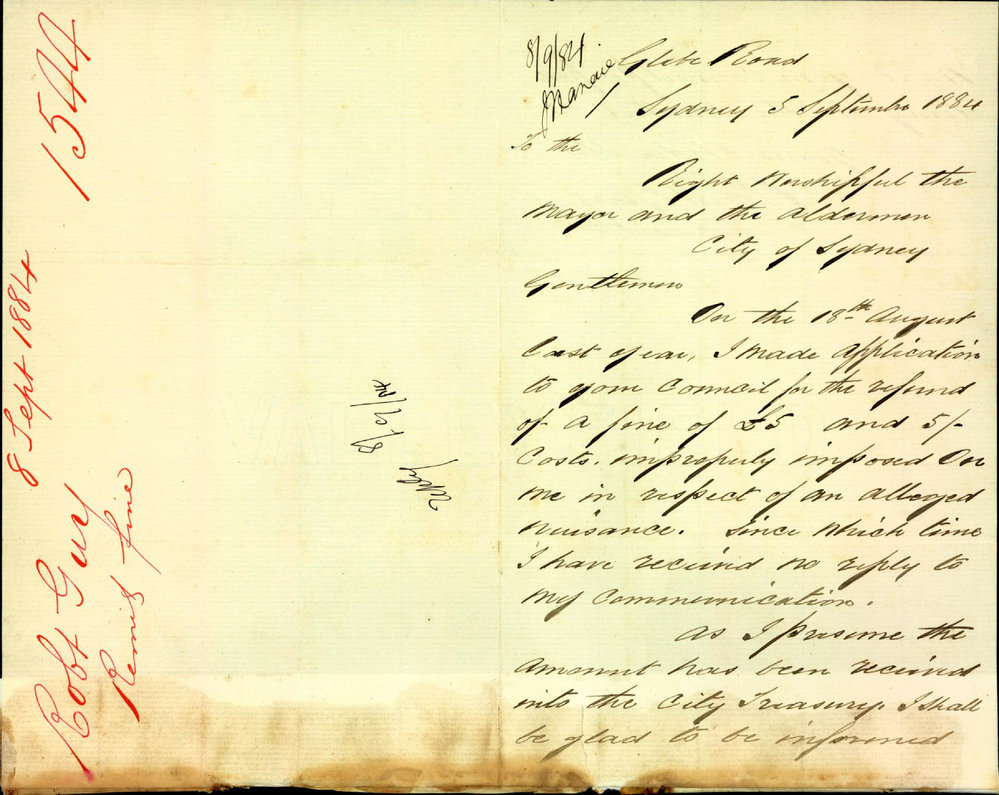 1544
8 Sept 1884
Robt Guy
Remit fine
8/9/84
Glebe Road
Sydney 5 September 1884
To the
Right Worshipful the
Mayor and the Aldermen
City of Sydney
Gentlemen
On the 18th August
last year, I made application
to your Council for the refund
of a fine of £5 and 5/-
Costs. improperly imposed On
me in respect of an alleged
nuisance. Since which time
I have received no reply to
my communication.
As I presume the
amount has been received
into the City Treasury I shall
be glad to be informed